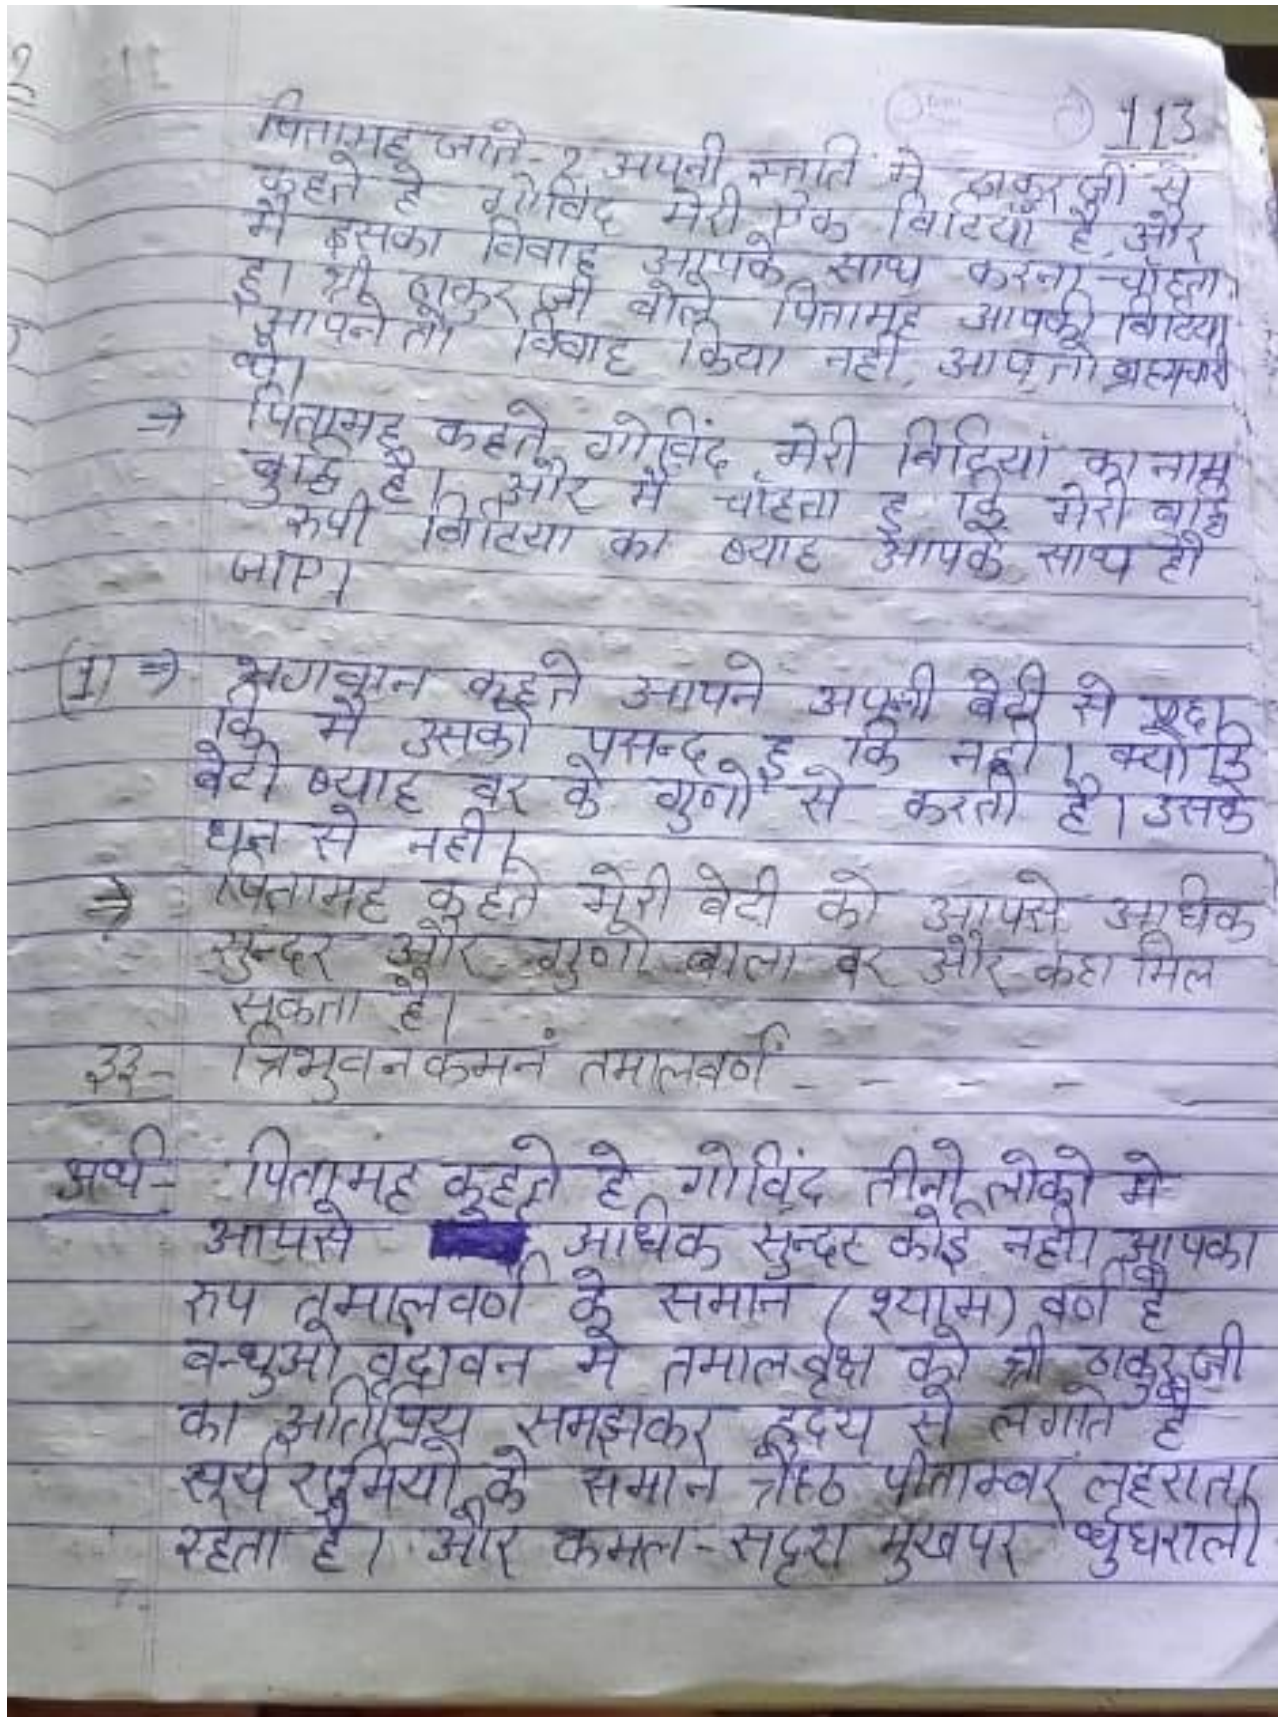 113
पितामह जाते-२ अपनी स्तुति मे ठाकुर जी से
कहते हे गोविंद मेरी एक बिटिया है और
मै इसका विवाह आपके साथ करना चाँहता
हू। श्री ठाकुर जी बोले पितामह आपकी बिटिया
आपने तो विवाह किया नही, आप तो ब्रह्मचारी
थे।
→ पितामह कहते गोविंद मेरी बिटियां का नाम
बुद्धि है। और मै चाँहता हू कि मेरी बुद्धि
रुपी बिटिया का ब्याह आपके साथ हो
जाए।
(1) ⇒ भगवान कहते आपने अपनी बेटी से पूछा
कि मै उसको पसन्द हू कि नही। क्यो कि
बेटी ब्याह वर के गुणो से करती है। उसके
धन से नही।
⇒ पितामह कहते मेरी बेटी को आपसे अधिक
सुन्दर और गुणो वाला वर और कहा मिल
सकता है।
३३- त्रिभुवनकमनं तमालवर्णं - - - - -
अर्थ- पितामह कहते हे गोविंद तीनो लोको मे
आपसे अधिक सुन्दर कोई नही। आपका
रुप तमालवर्ण के समान (श्याम) वर्ण है
बन्धुओ वृदावन मे तमालवृक्ष को श्री ठाकुर जी
का अतिप्रिय समझकर हृदय से लगाते है
सूर्य रश्मियो के समान श्रेष्ठ पीताम्बर लहराता
रहता है। और कमल-सदृश मुखपर घुंघराली